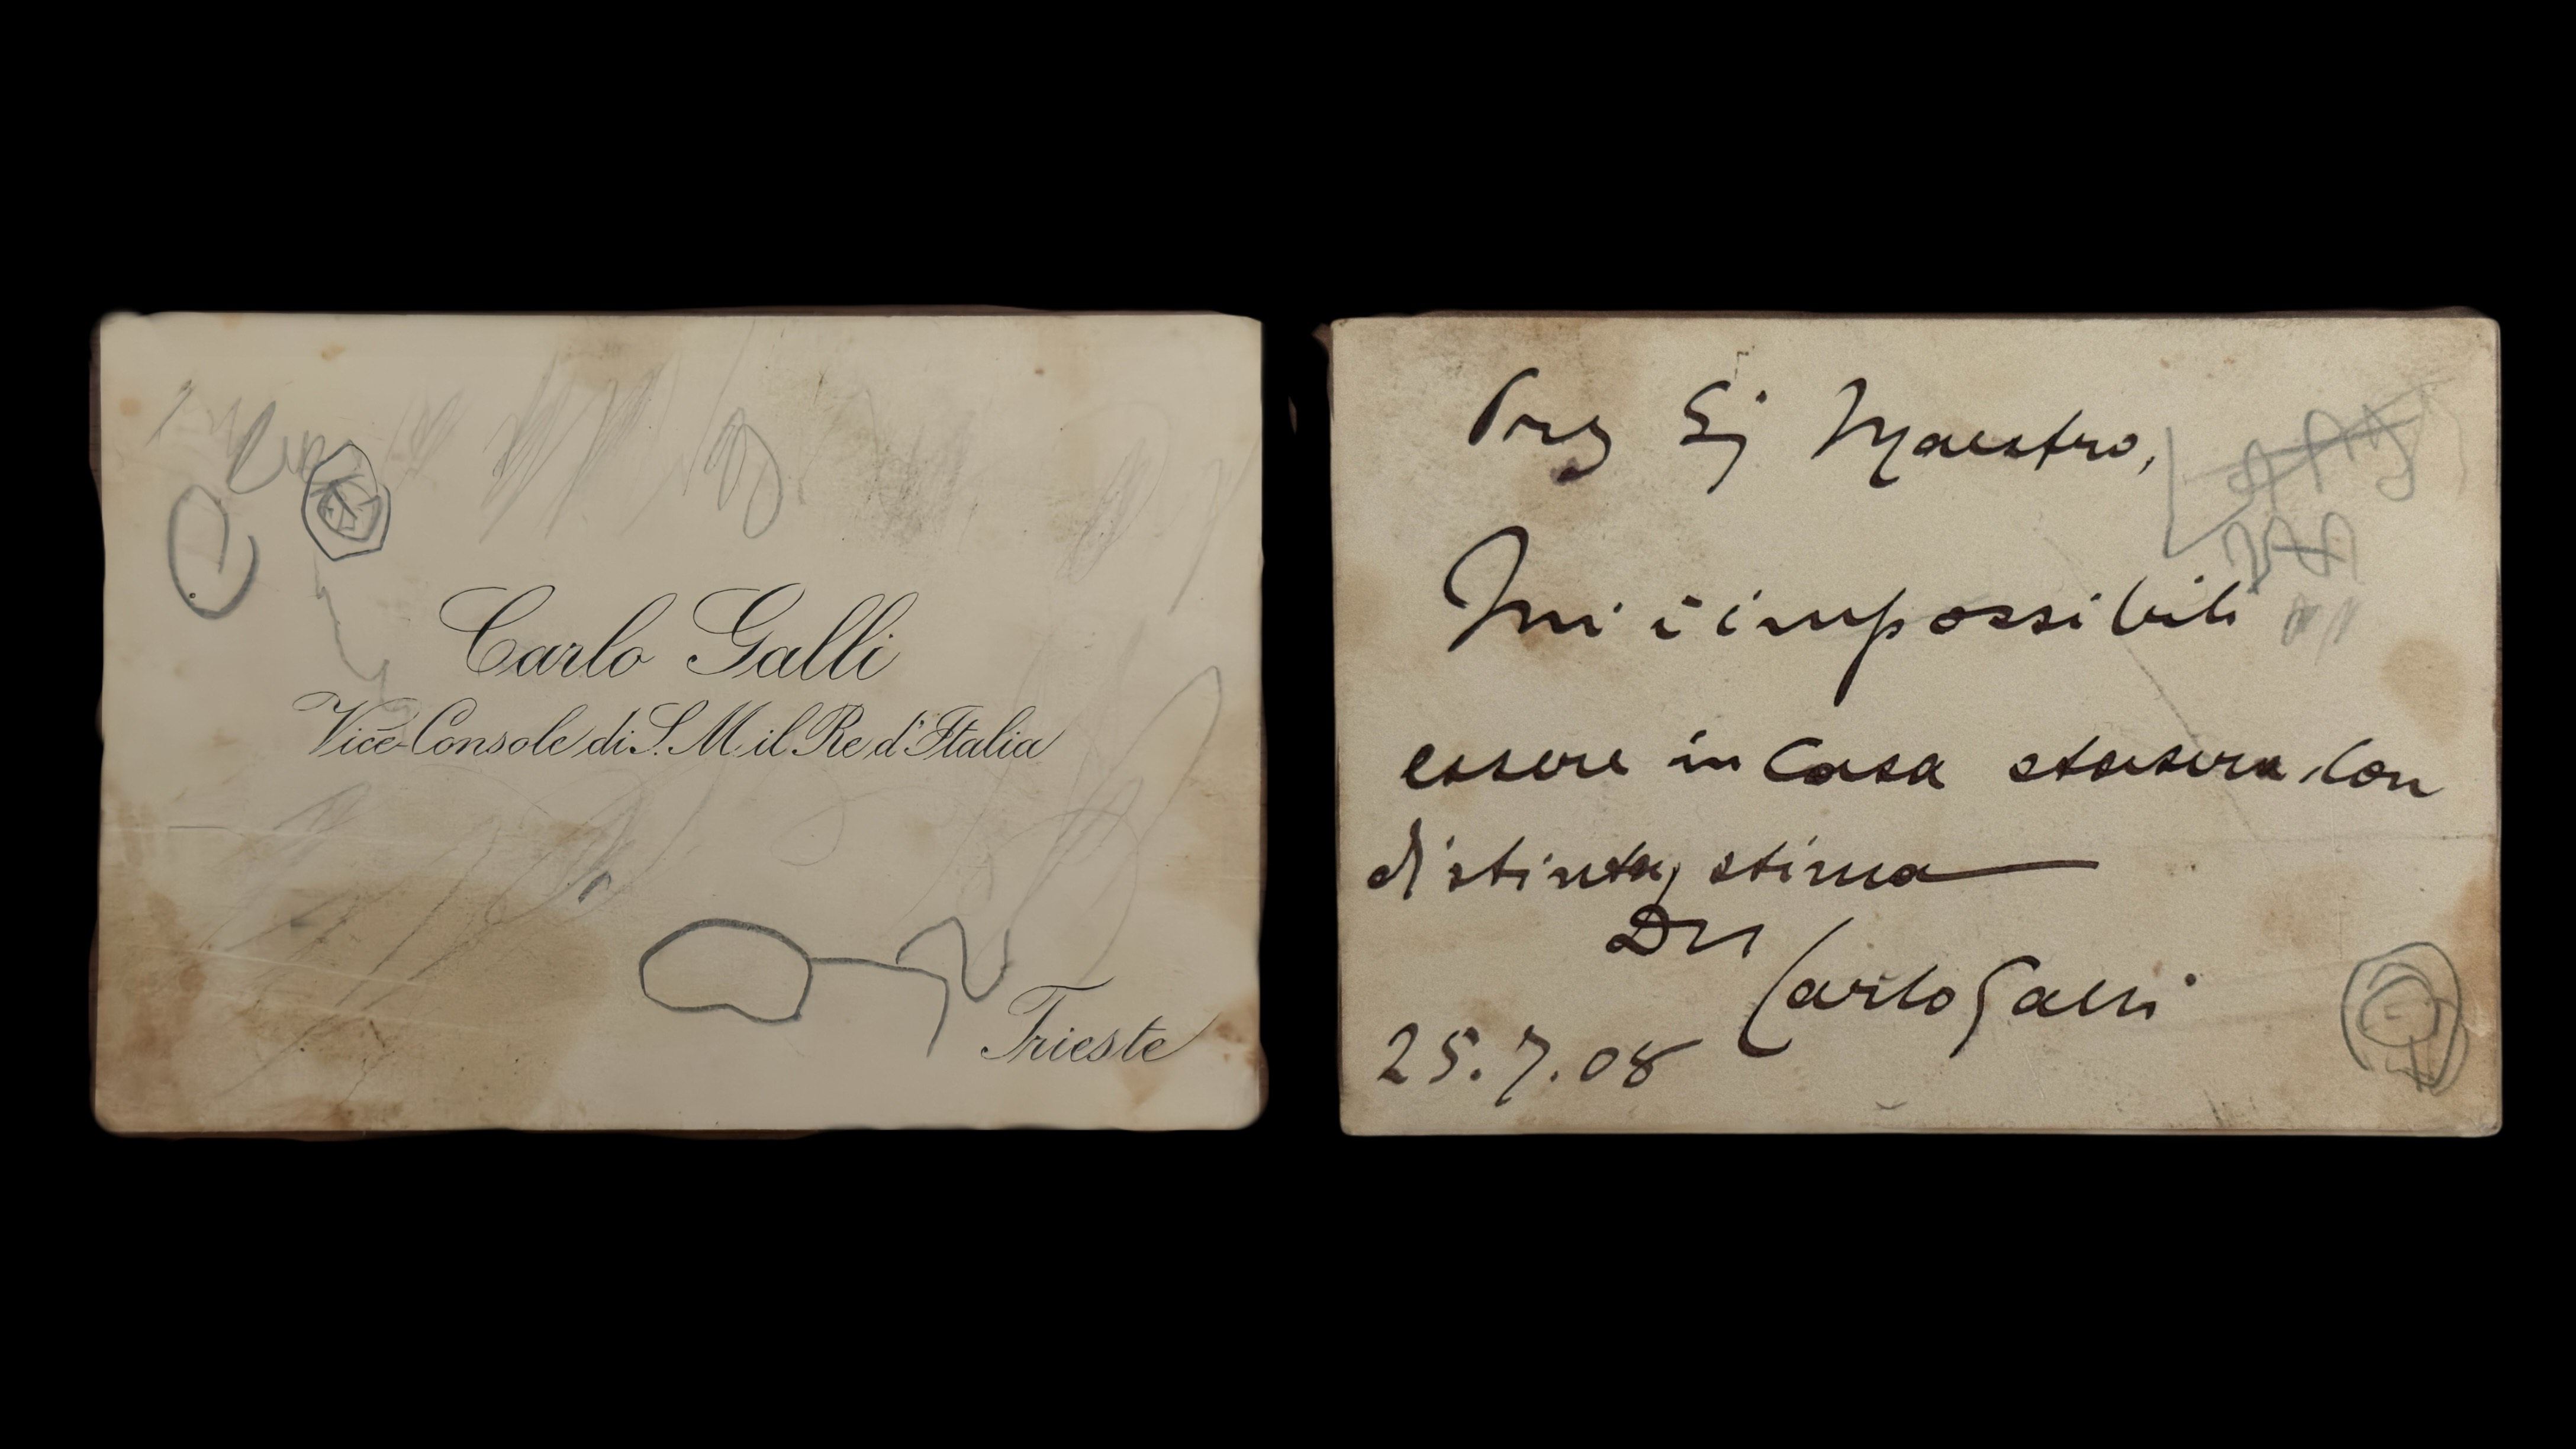 Carlo Galli
Vice-Console di S. M. il Re d'Italia
Trieste
Preg Sig Maestro,
Mi è impossibile
essere in casa stasera. Con
distinta stima
Dr
Carlo Galli
25.7.08